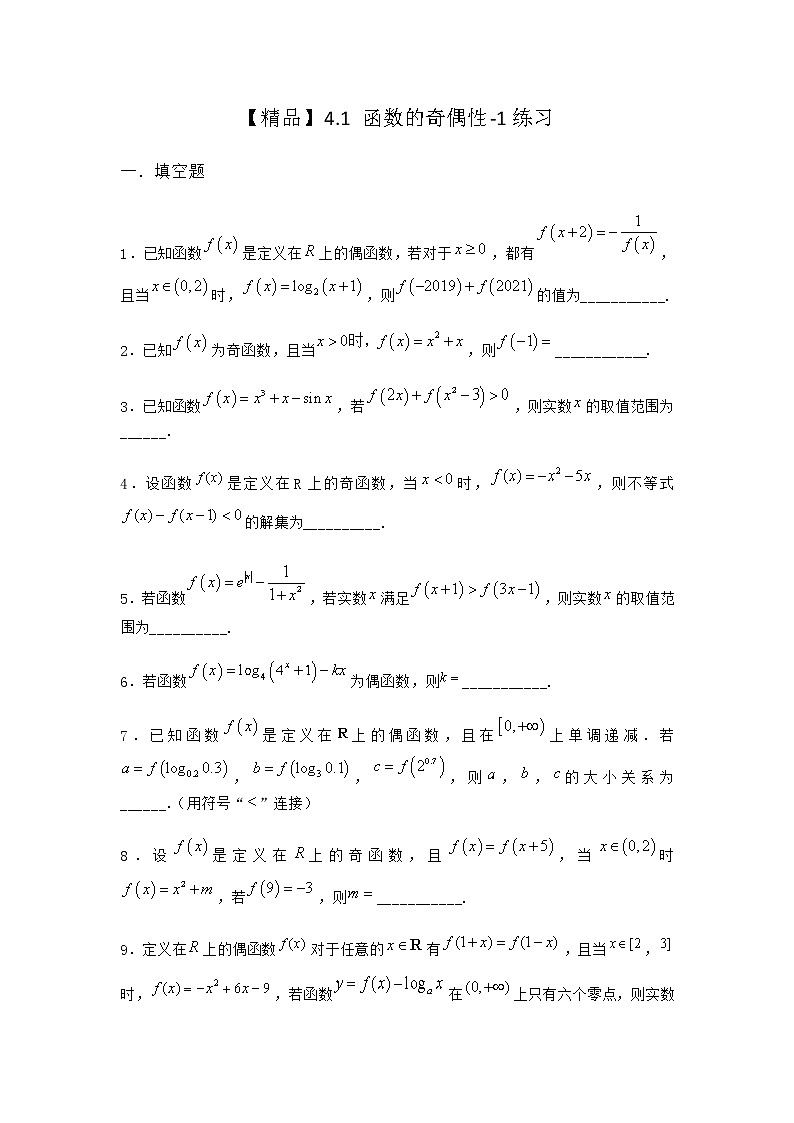 【精品】4.1 函数的奇偶性-1练习
一. 填空题
1.已知函数f(x)是定义在R上的偶函数,若对于x≥0,都有f(x+2)=-1/f(x),
且当x∈(0,2)时,f(x)=log₂(x+1),则f(-2019)+f(2021)的值为___________.
2.已知f(x)为奇函数,且当x>0时,f(x)=x²+x,则f(-1)=____________.
3.已知函数f(x)=x³+x-sin x,若f(2x)+f(x²-3)>0,则实数x的取值范围为
______.
4.设函数f(x)是定义在R上的奇函数,当x<0时,f(x)=-x²-5x,则不等式
f(x)-f(x-1)<0的解集为__________.
5.若函数f(x)=e^|x|-1/(1+x²),若实数x满足f(x+1)>f(3x-1),则实数x的取值范
围为__________.
6.若函数f(x)=log₄(4ˣ+1)-kx为偶函数,则k=___________.
7.已知函数f(x)是定义在R上的偶函数,且在[0,+∞)上单调递减.若
a=f(log₀.₂0.3),b=f(log₃0.1),c=f(2^0.7),则a,b,c的大小关系为
______.(用符号“<”连接)
8.设f(x)是定义在R上的奇函数,且f(x)=f(x+5),当x∈(0,2)时
f(x)=x²+m,若f(9)=-3,则m=___________.
9.定义在R上的偶函数f(x)对于任意的x∈R有f(1+x)=f(1-x),且当x∈[2,3]
时,f(x)=-x²+6x-9,若函数y=f(x)-logₐx在(0,+∞)上只有六个零点,则实数